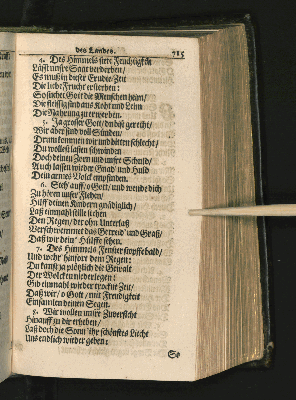 des Landes. 715
4. Des Himmels stete Feuchtigkeit
Läst unsre Saat verderben /
Es muß in dieser Ernde-Zeit
Die liebe Frucht ersterben:
So suchet Gott die Menschen heim /
Die fleissig sind aus Koht und Leim
Die Nahrung zu erwerben.
5. Ja grosser Gott / du bist gerecht /
Wir aber sind voll Sünden /
Drum kommen wir und bitten schlecht /
Du wollest lassen schwinden
Doch deinen Zorn und unsre Schuld /
Auch lassen wieder Gnad' und Huld
Dein armes Volck empfinden.
6. Steh' auff / o Gott / und wende dich
Zu hören unser Flehen /
Hilff deinen Kindern gnädiglich /
Laß einmahl stille stehen
Den Regen / der ohn Unterlaß
Verschwemmet das Getreid' und Graß /
Daß wir dein' Hülffe sehen.
7. Des Himmels Fenster stopffe bald /
Und wehr hinfort dem Regen:
Du kanst ja plötzlich die Gewalt
Der Wolcken niederlegen:
Gib einmahl wieder trockne Zeit /
Daß wir / o Gott / mit Freudigkeit
Einsamlen deinen Segen.
8. Wir wollen unsre Zuversicht
Hinauff zu dir erheben /
Laß doch die Sonn' ihr schönstes Liecht
Uns endlich wieder geben:
So